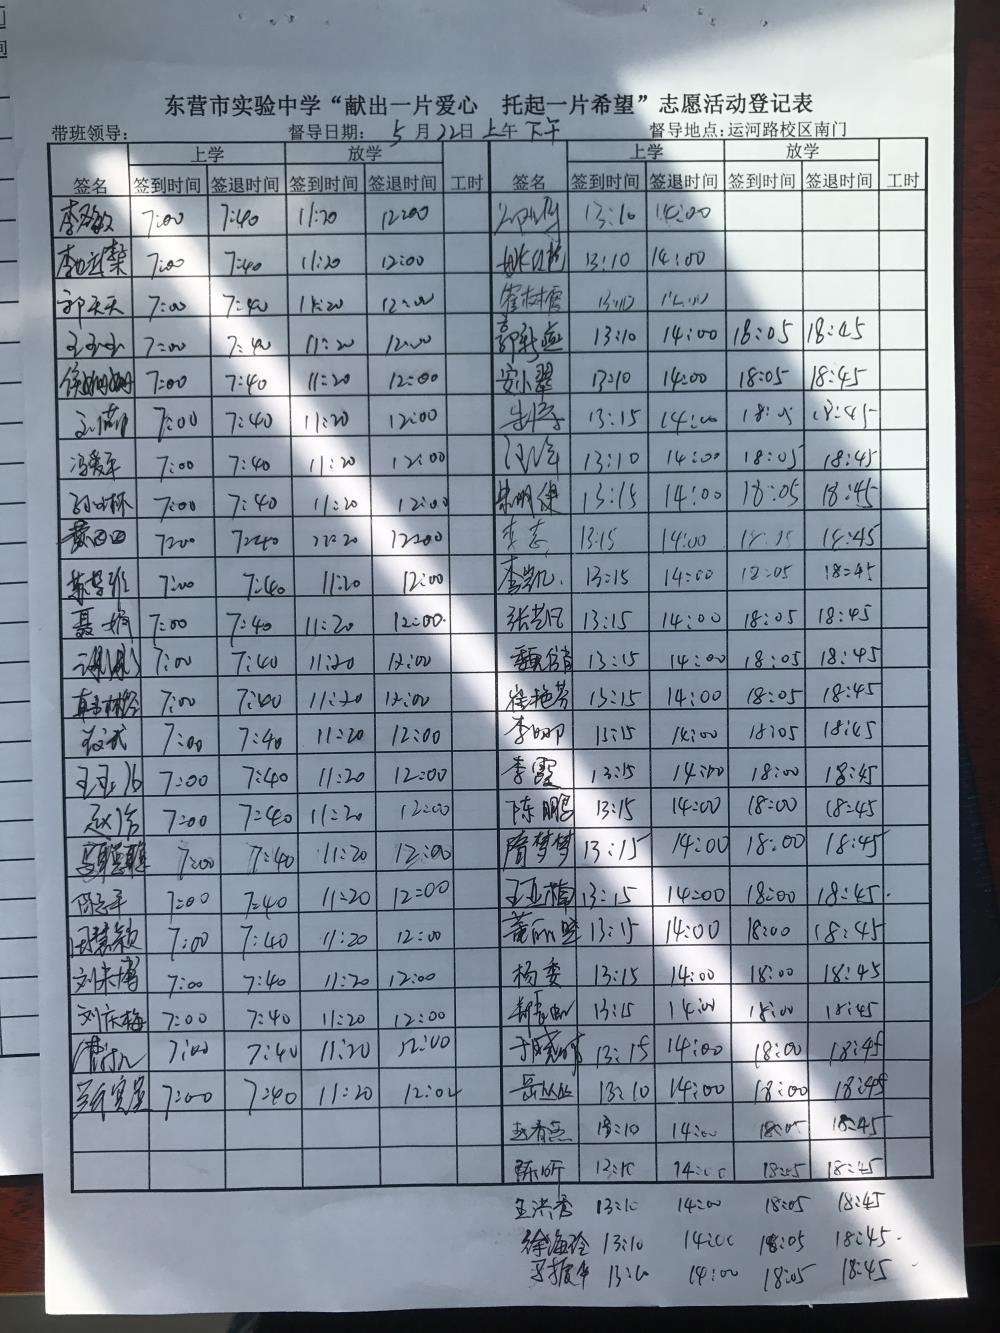 东营市实验中学“献出一片爱心 托起一片希望”志愿活动登记表
带班领导: 督导日期: 5月22日上午 下午 督导地点:运河路校区南门
上学 放学 上学 放学
签名 签到时间 签退时间 签到时间 签退时间 工时 签名 签到时间 签退时间 签到时间 签退时间 工时
7:00 7:40 11:20 12:00 13:10 14:00
7:00 7:40 11:20 12:00 13:10 14:00
郭天天 7:00 7:40 11:20 12:00 崔树雪 13:10 14:00
王玉玉 7:00 7:40 11:20 12:00 13:10 14:00 18:05 18:45
徐姗姗 7:00 7:40 11:20 12:00 安小翠 13:10 14:00 18:05 18:45
7:00 7:40 11:20 12:00 13:15 14:00 18:05 18:45
冯爱军 7:00 7:40 11:20 12:00 13:10 14:00 18:05 18:45
7:00 7:40 11:20 12:00 13:15 14:00 18:05 18:45
7:00 7:40 11:20 12:00 李志 13:15 14:00 18:15 18:45
7:00 7:40 11:20 12:00 李凯 13:15 14:00 18:05 18:45
聂娟 7:00 7:40 11:20 12:00 13:15 14:00 18:05 18:45
7:00 7:40 11:20 12:00 13:15 14:00 18:05 18:45
7:00 7:40 11:20 12:00 崔艳芳 13:15 14:00 18:05 18:45
7:00 7:40 11:20 12:00 13:15 14:00 18:05 18:45
7:00 7:40 11:20 12:00 李霞 13:15 14:00 18:00 18:45
7:00 7:40 11:20 12:00 陈鹏 13:15 14:00 18:00 18:45
7:00 7:40 11:20 12:00 隋梦梦 13:15 14:00 18:00 18:45
7:00 7:40 11:20 12:00 王亚楠 13:15 14:00 18:00 18:45
田慧颖 7:00 7:40 11:20 12:00 13:15 14:00 18:00 18:45
7:00 7:40 11:20 12:00 杨委 13:15 14:00 18:00 18:45
刘庆梅 7:00 7:40 11:20 12:00 13:15 14:00 18:00 18:45
7:00 7:40 11:20 12:00 于晓晴 13:15 14:00 18:00 18:45
7:00 7:40 11:20 12:02 岳丛丛 13:10 14:00 18:00 18:45
13:10 14:00 18:05 18:45
陈昕 13:10 14:00 18:05 18:45
王洪秀 13:10 14:00 18:05 18:45
徐海玲 13:10 14:00 18:05 18:45
13:10 14:00 18:05 18:45